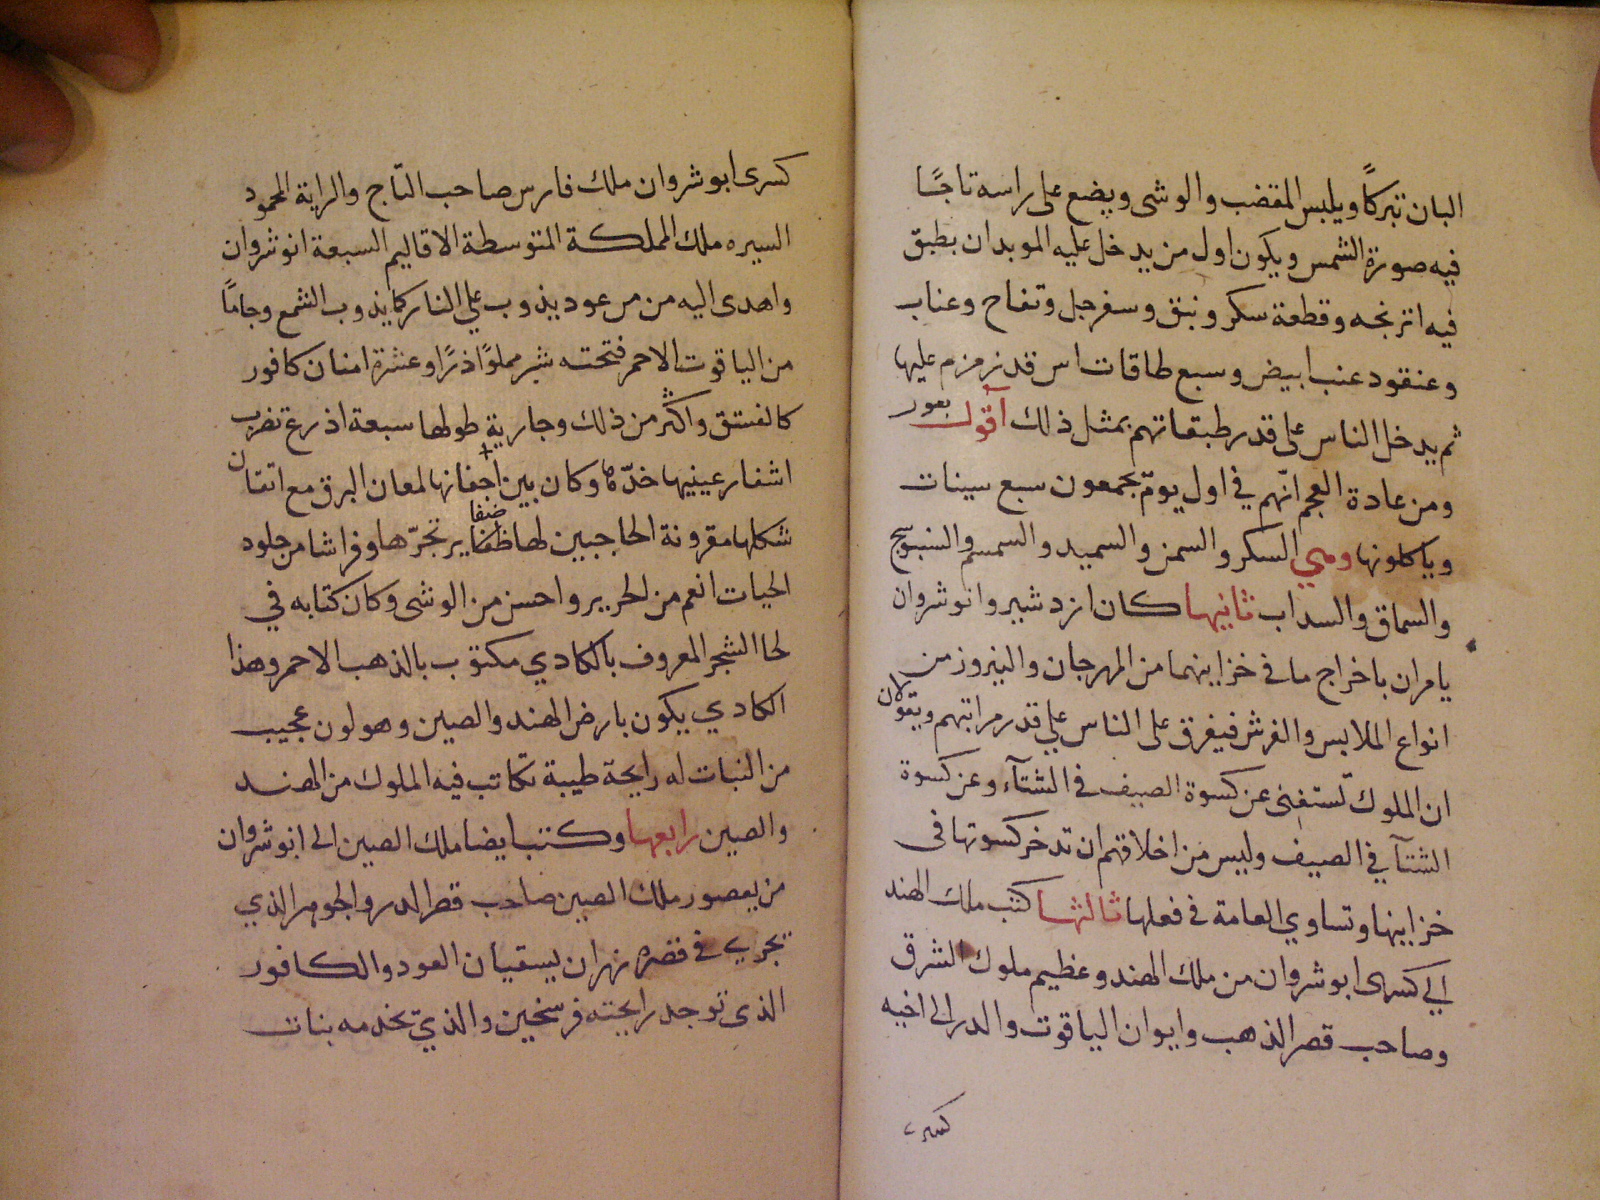 البان تبركًا ويلبس المقضب والوشى ويضع على راسه تاجًا
فيه صورة الشمس ويكون اول من يدخل عليه الموبدان بطبق
فيه اترنجه وقطعة سكر ونبق وسفرجل وتفاح وعناب
وعنقود عنب ابيض وسبع طاقات اس قد زمزم عليها
ثم يدخل الناس على قدر طبقاتهم بمثل ذلك أقول
ومن عادة العجم انّهم في اول يوم يجمعون سبع سينات
وياكلونها وهي السكر والسمن والسميد والسمسم
والسماق والسداب ثانيها كان ازدشير وانوشروان
يامران باخراج ما في خزاينهما من المهرجان والنيروز من
انواع الملابس والفرش فيفرق على الناس علي قدر مراتبهم ويقولان
ان الملوك تستغنى عن كسوة الصيف في الشتآء وعن كسوة
الشتآ في الصيف وليس من اخلاقهم ان تدخر كسوتها في
خزاينها وتساوي العامة في فعلها ثالثها كتب ملك الهند
الي كسرى ابوشروان من ملك الهند وعظيم ملوك الشرق
وصاحب قصر الذهب وايوان الياقوت والدر الى اخيه
كسرى
كسرى ابوشروان ملك فارس صاحب التاج والراية المحمود
السيره ملك المملكة المتوسطة الاقاليم السبعة انوشروان
واهدى اليه من من عود يذوب علي النار كما يذوب الشمع وجامًا
من الياقوت الاحمر فتحته شبر مملوًا درًا وعشرة امنان كافور
كالفستق واكثر من ذلك وجارية طولها سبعة اذرع تضرب
اشفار عينيها خدّها وكان بين اجفانها لمعان البرق مع اتقان
شكلها مقرونة الحاجبين لها ظفاير تجرّها وفراشا من جلود
ضفا
الحيات انعم من الحرير واحسن من الوشى وكان كتابه في
لحا الشجر المعروف بالكادي مكتوب بالذهب الاحمر وهذا
الكادي يكون بارض الهند والصين وهو لون عجيب
من النبات له رايحة طيبة تكاتب فيه الملوك من الهند
والصين رابعها وكتب ايضا ملك الصين الى انوشروان
من يعصور ملك الصين صاحب قصر الدر والجوهر الذي
تجري في قصره نهران يسقيان العود والكافور
الذى توجد رايحته فرسخين والذي تخدمه بنات